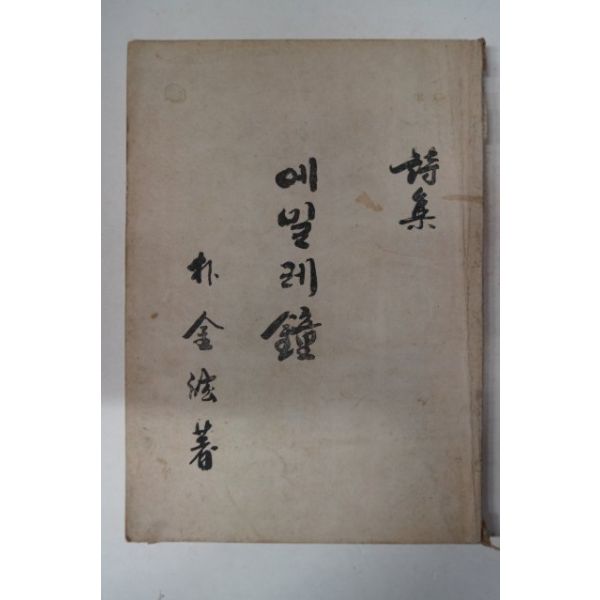 詩集
에밀레鐘
朴金波著